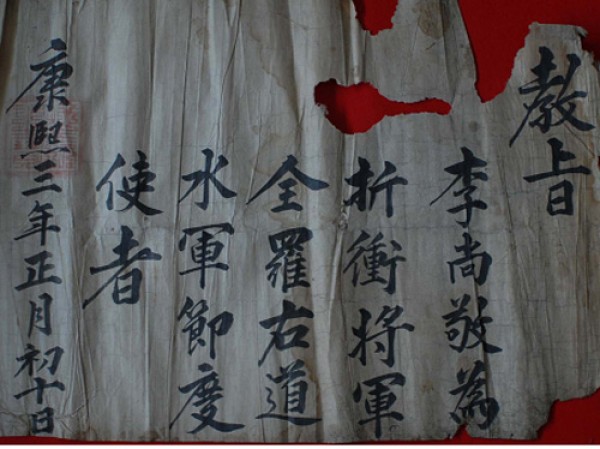 教旨
李尚敬為
折衝將軍
全羅右道
水軍節度
使者
康熙三年正月初十日